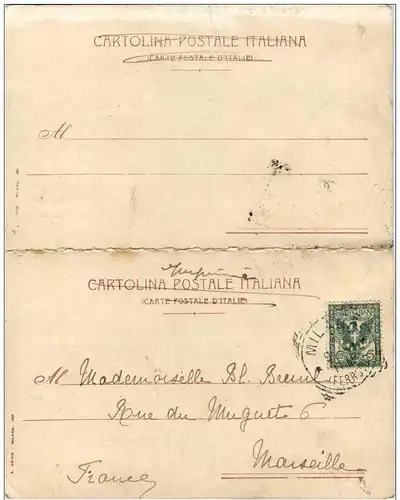 CARTOLINA POSTALE ITALIANA
(CARTE POSTALE D'ITALIE)
M
Imprimé
CARTOLINA POSTALE ITALIANA
(CARTE POSTALE D'ITALIE)
MILANO
(FERROVIA)
M Mademoiselle Bl. Breuil
Rue du Muguet 6
Marseille
France